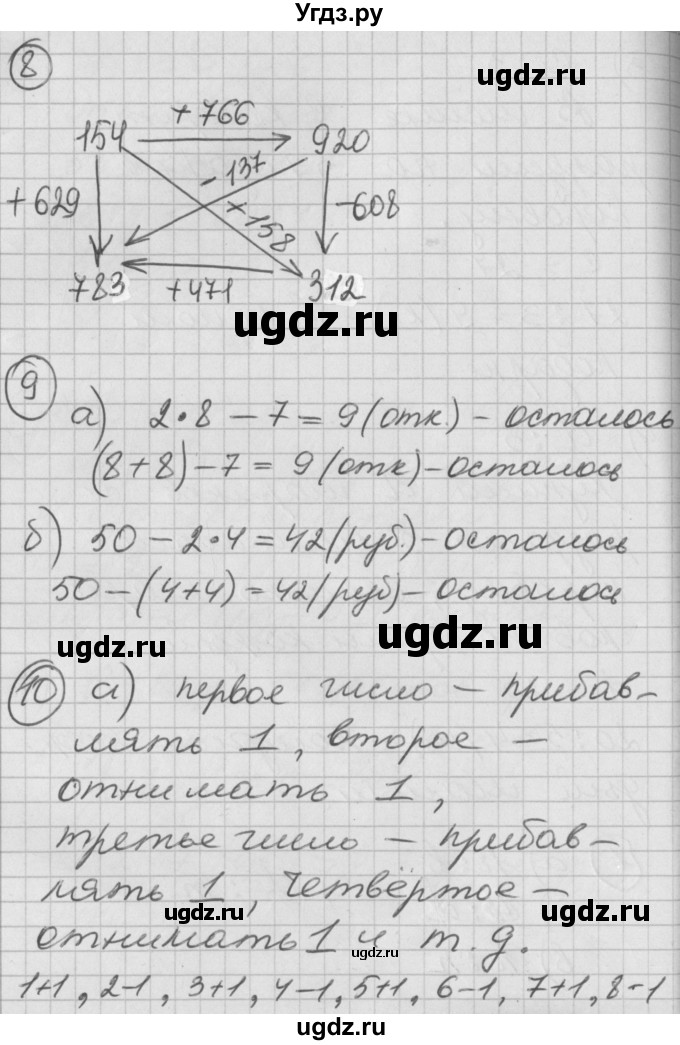 Угдз.ру
8
ugdz.ru
+766
154
920
-137
+629
+158
-608
783
+471
312
ugdz.ru
9
а) 2•8 - 7 = 9 (отк.) - осталось
(8+8) - 7 = 9 (отк) - осталось
б) 50 - 2•4 = 42 (руб.) - осталось
50 - (4+4) = 42 (руб) - осталось
ugdz.ru
ugdz.ru
10 а) первое число - прибав-
лять 1, второе -
отнимать 1,
третье число - прибав-
лять 1, четвёртое -
ugdz.ru
отнимать 1 и т.д.
ugdz.ru
1+1, 2-1, 3+1, 4-1, 5+1, 6-1, 7+1, 8-1
ugdz.ru